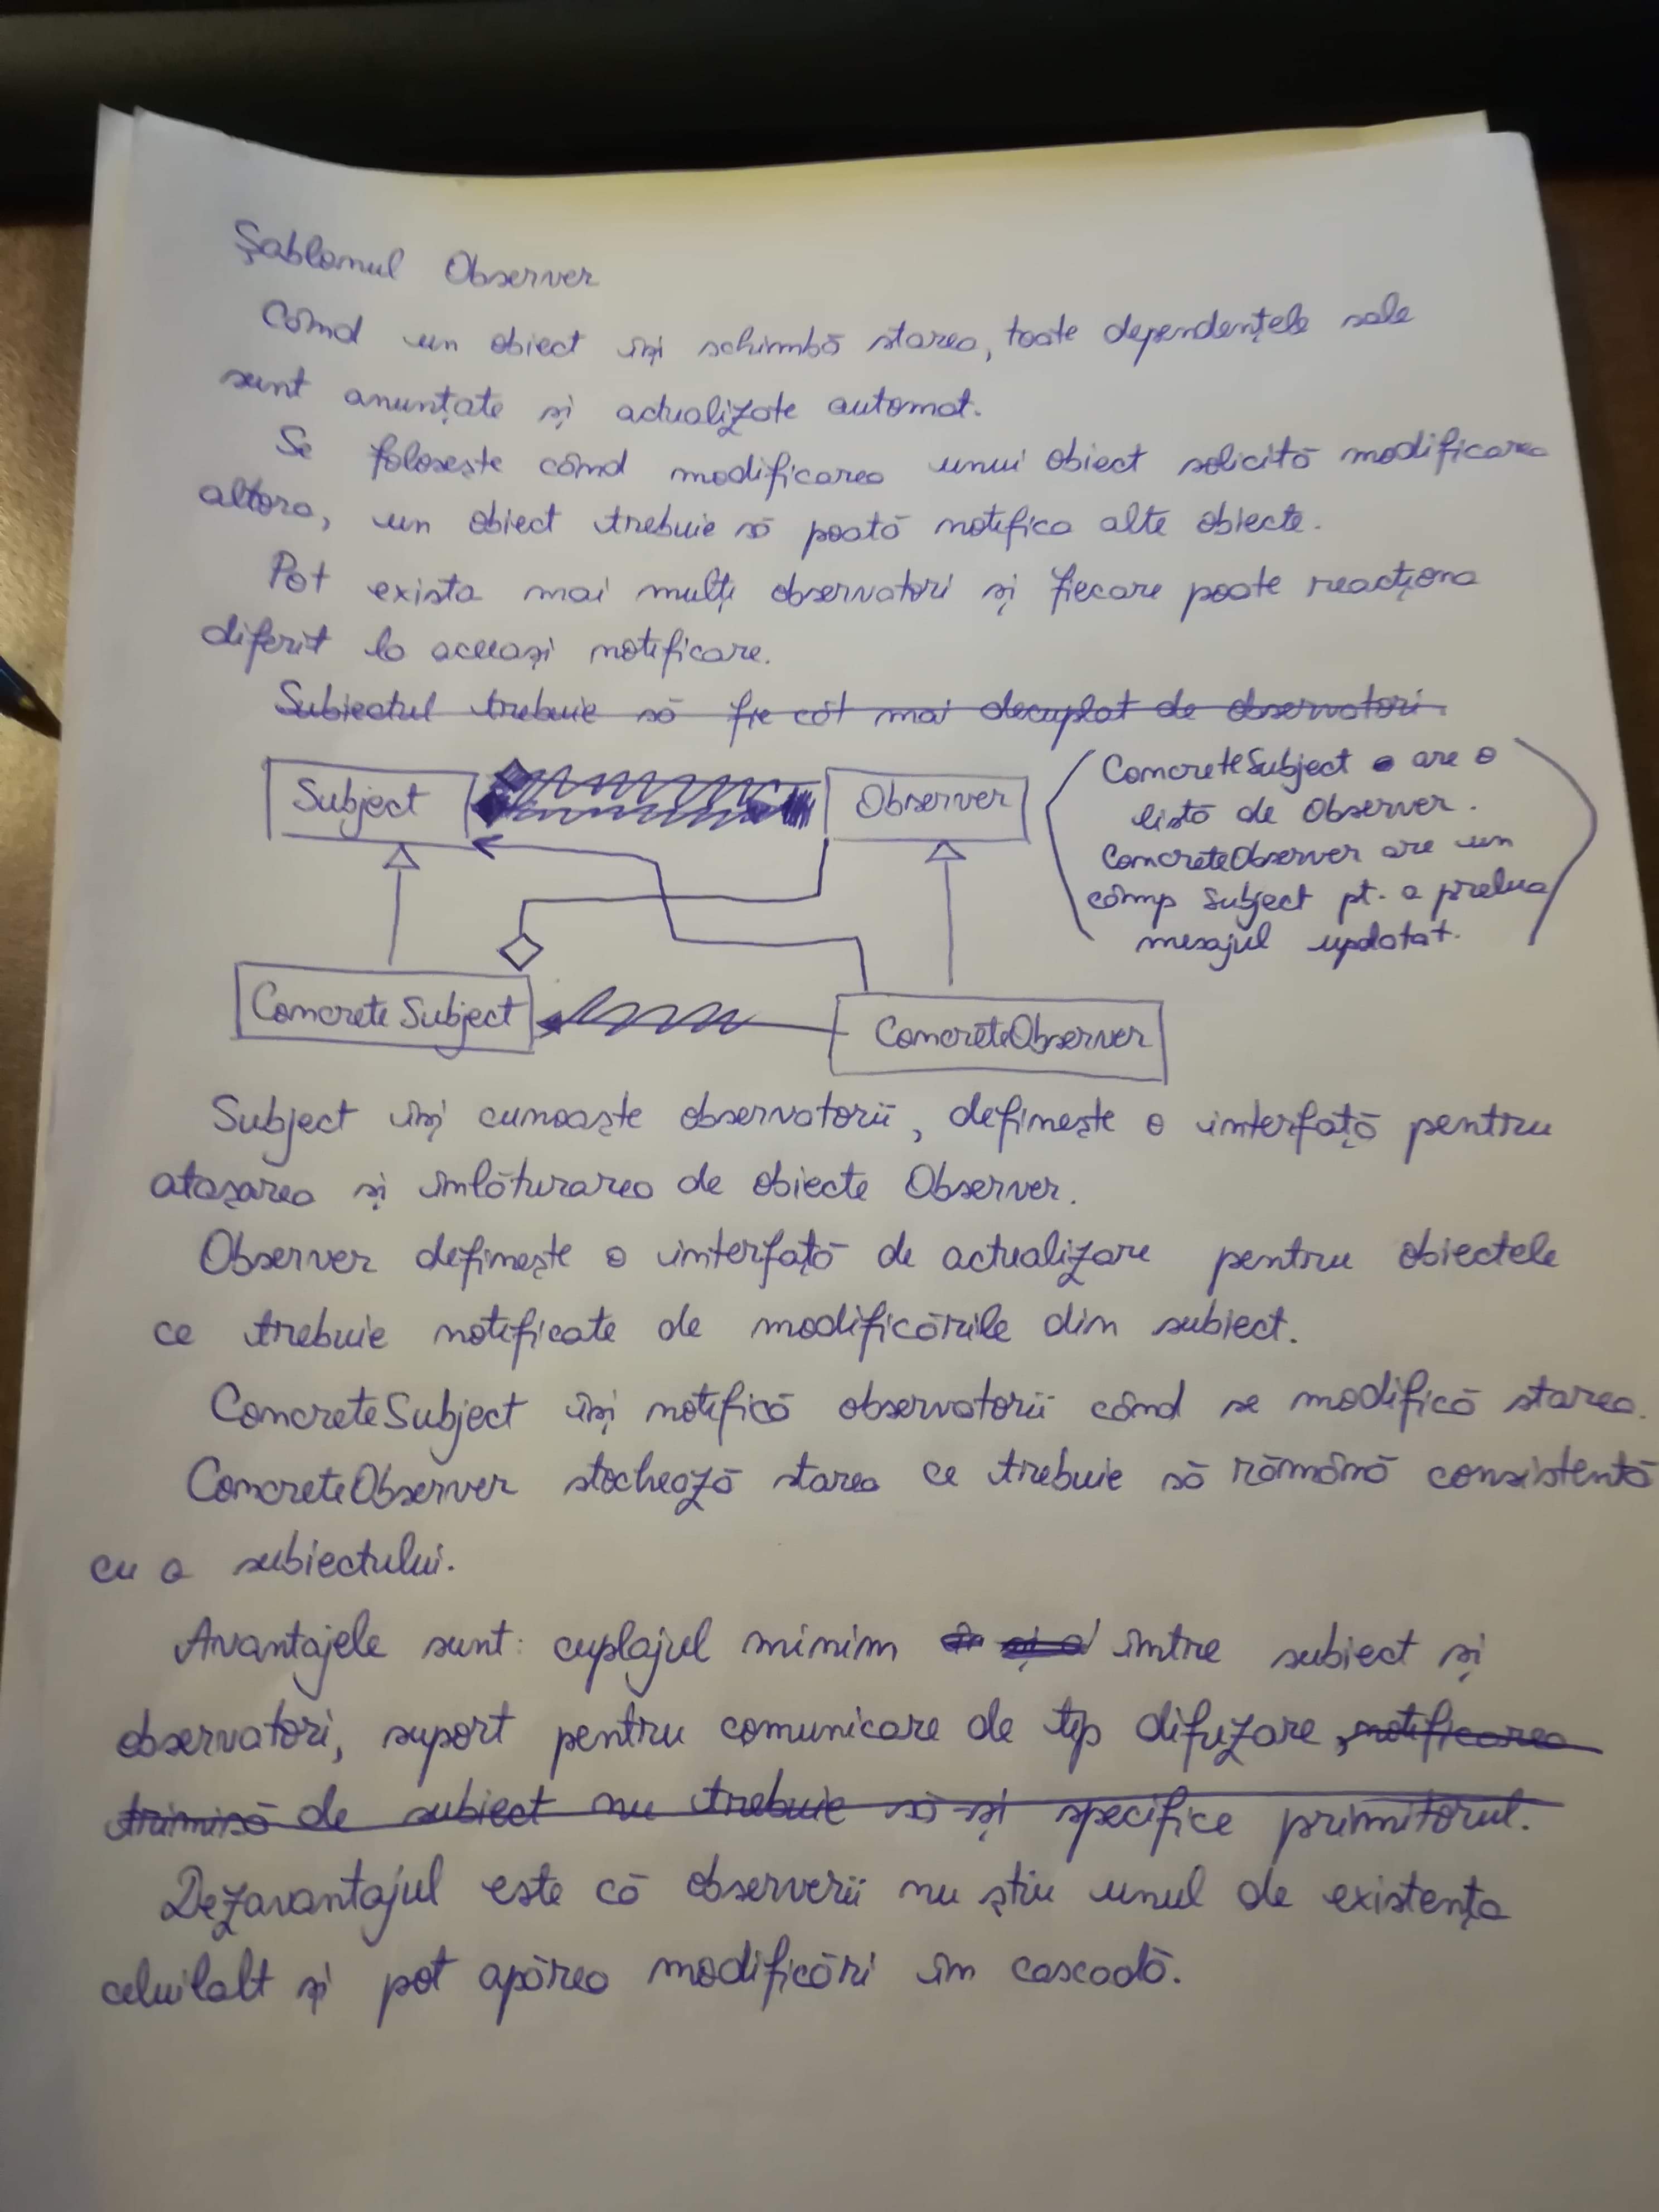 Șablonul Observer
Când un obiect își schimbă starea, toate dependențele sale
sunt anunțate și actualizate automat.
Se folosește când modificarea unui obiect solicită modificarea
altora, un obiect trebuie să poată notifica alte obiecte.
Pot exista mai mulți observatori și fiecare poate reacționa
diferit la aceeași notificare.
Subiectul trebuie să fie cât mai decuplat de observatori.
Subject
Observer
ConcreteSubject are o
listă de Observer.
ConcreteObserver are un
câmp Subject pt. a prelua
mesajul updatat.
ConcreteSubject
ConcreteObserver
Subject își cunoaște observatorii, definește o interfață pentru
atașarea și înlăturarea de obiecte Observer.
Observer definește o interfață de actualizare pentru obiectele
ce trebuie notificate de modificările din subiect.
ConcreteSubject își notifică observatorii când se modifică starea.
ConcreteObserver stochează starea ce trebuie să rămână consistentă
cu a subiectului.
Avantajele sunt: cuplajul minim între subiect și
observatori, suport pentru comunicare de tip difuzare, notificarea
trimisă de subiect nu trebuie să-și specifice primitorul.
Dezavantajul este că observerii nu știu unul de existența
celuilalt și pot apărea modificări în cascadă.